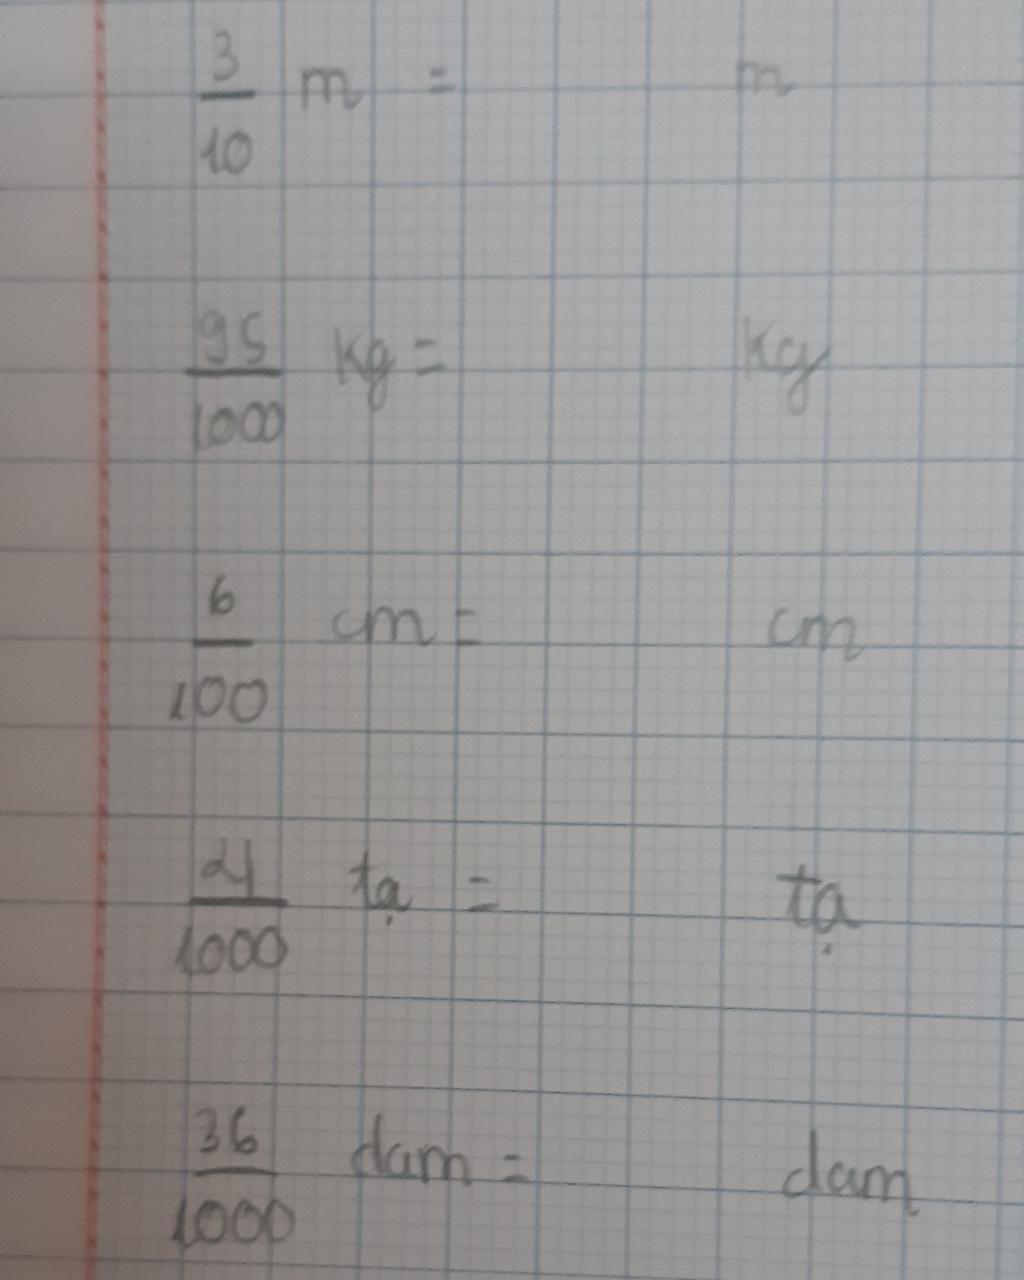 3/10 m = m
95/1000 kg = kg
6/100 cm = cm
21/1000 tạ = tạ
36/1000 dam = dam